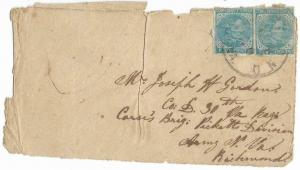 Mr Joseph H Gordon
Co: D. 30th Va Regt
Corse's Brig: Picketts Division
Army N. Va
Richmond